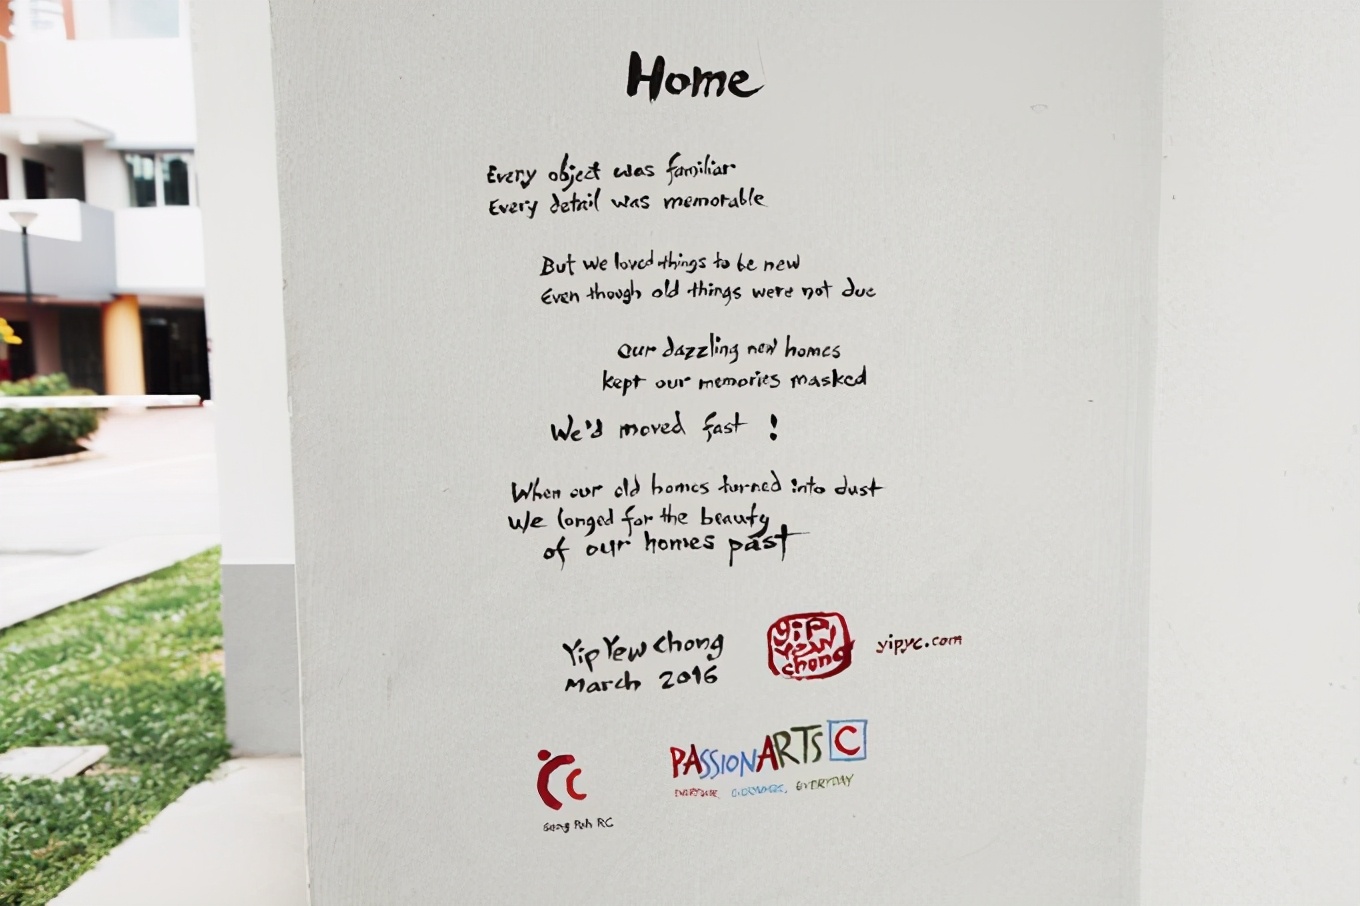 Home
Every object was familiar
Every detail was memorable
But we loved things to be new
Even though old things were not due
Our dazzling new homes
kept our memories masked
We'd moved fast !
When our old homes turned into dust
We longed for the beauty
of our homes past
Yip Yew Chong
March 2016
Yip
Yew
Chong
yipyc.com
PASSIONARTS C
EVERYDAY
RC